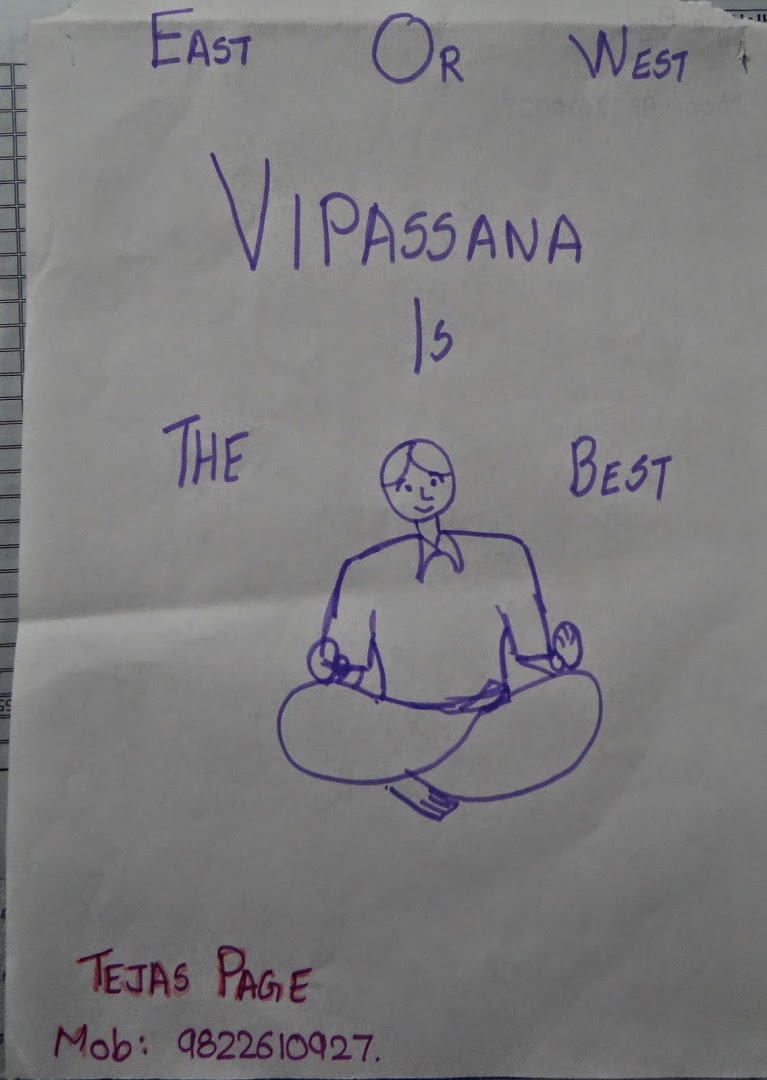 EAST OR WEST
VIPASSANA
IS
THE BEST
TEJAS PAGE
Mob: 9822610927.